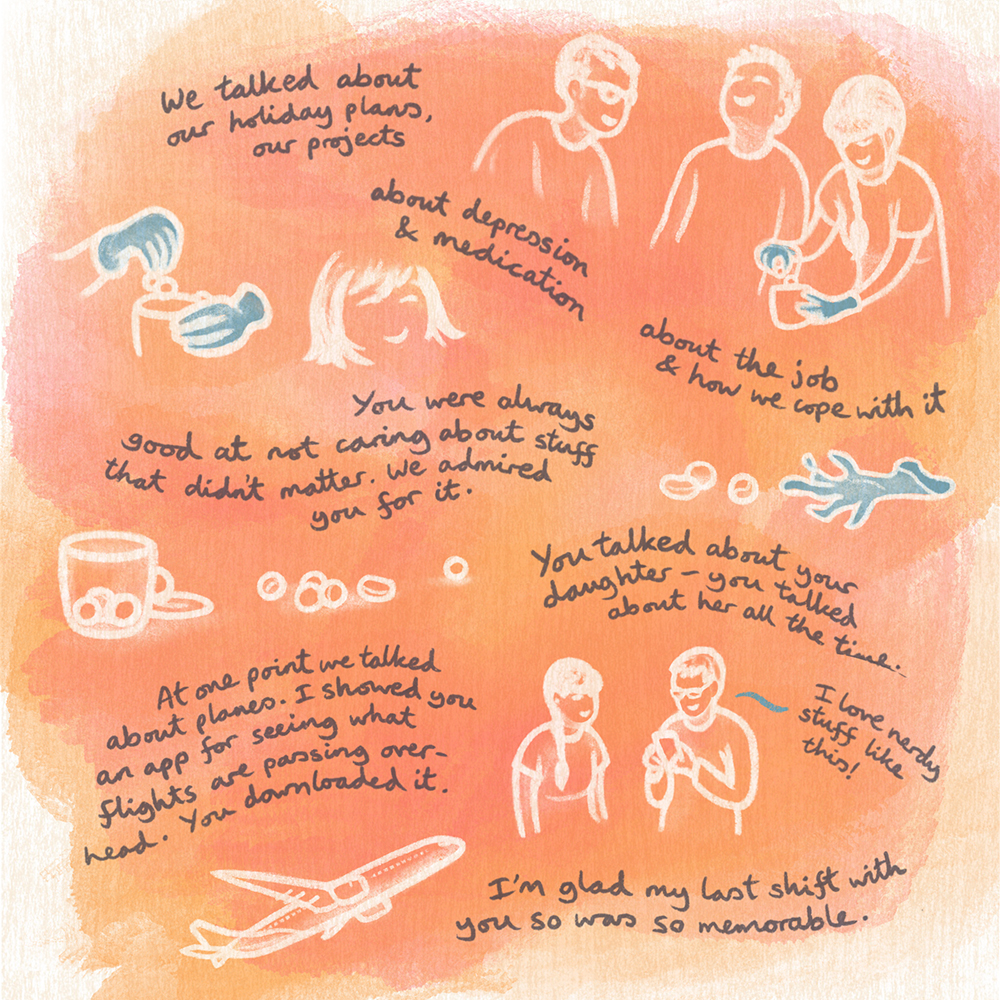 We talked about
our holiday plans,
our projects
about depression
& medication
about the job
& how we cope with it
You were always
good at not caring about stuff
that didn't matter. We admired
you for it.
You talked about your
daughter – you talked
about her all the time.
At one point we talked
about planes. I showed you
an app for seeing what
flights are passing over-
head. You downloaded it.
I love nerdy
stuff like
this!
I'm glad my last shift with
you so was so memorable.